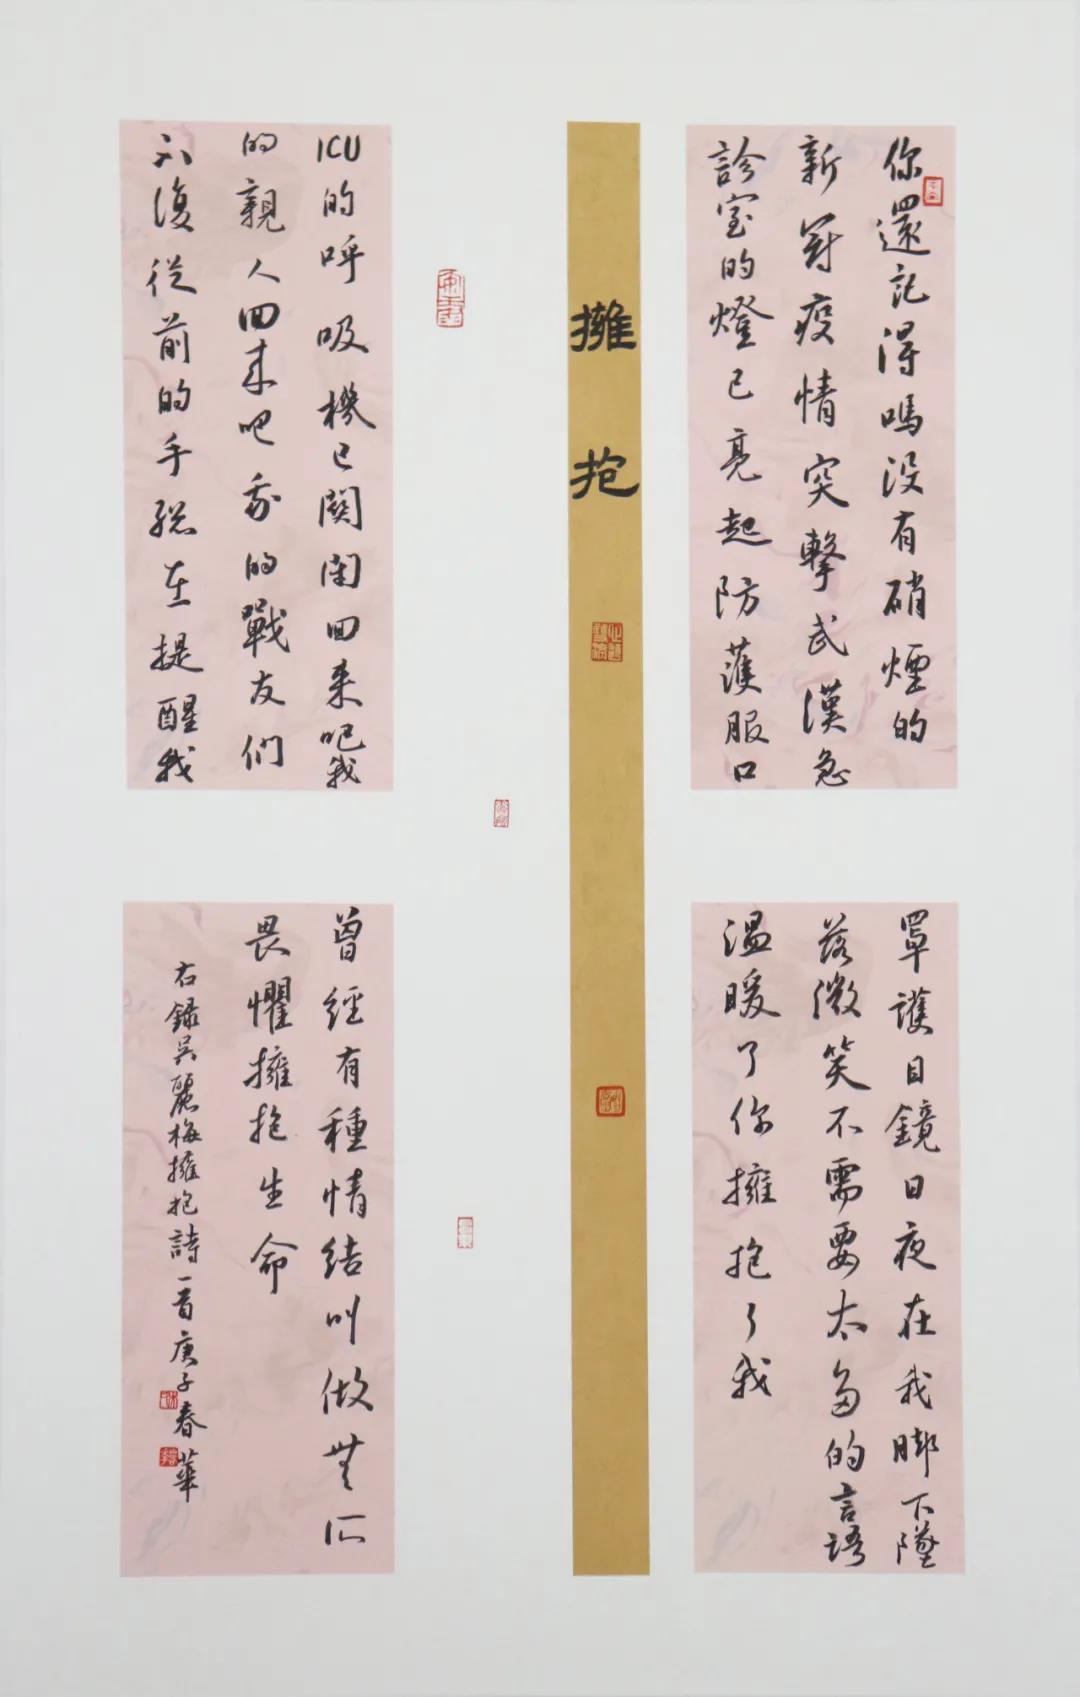 擁抱
你還記得嗎没有硝煙的
新冠疫情突擊武漢急
診室的燈已亮起防護服口
罩護目鏡日夜在我脚下墜
落微笑不需要太多的言語
温暖了你擁抱了我
ICU的呼吸機已關閉回来吧我
的親人回来吧我的戰友们
不復從前的手總在提醒我
曾經有種情結叫做無所
畏懼擁抱生命
右録吴麗梅擁抱詩一首庚子春華